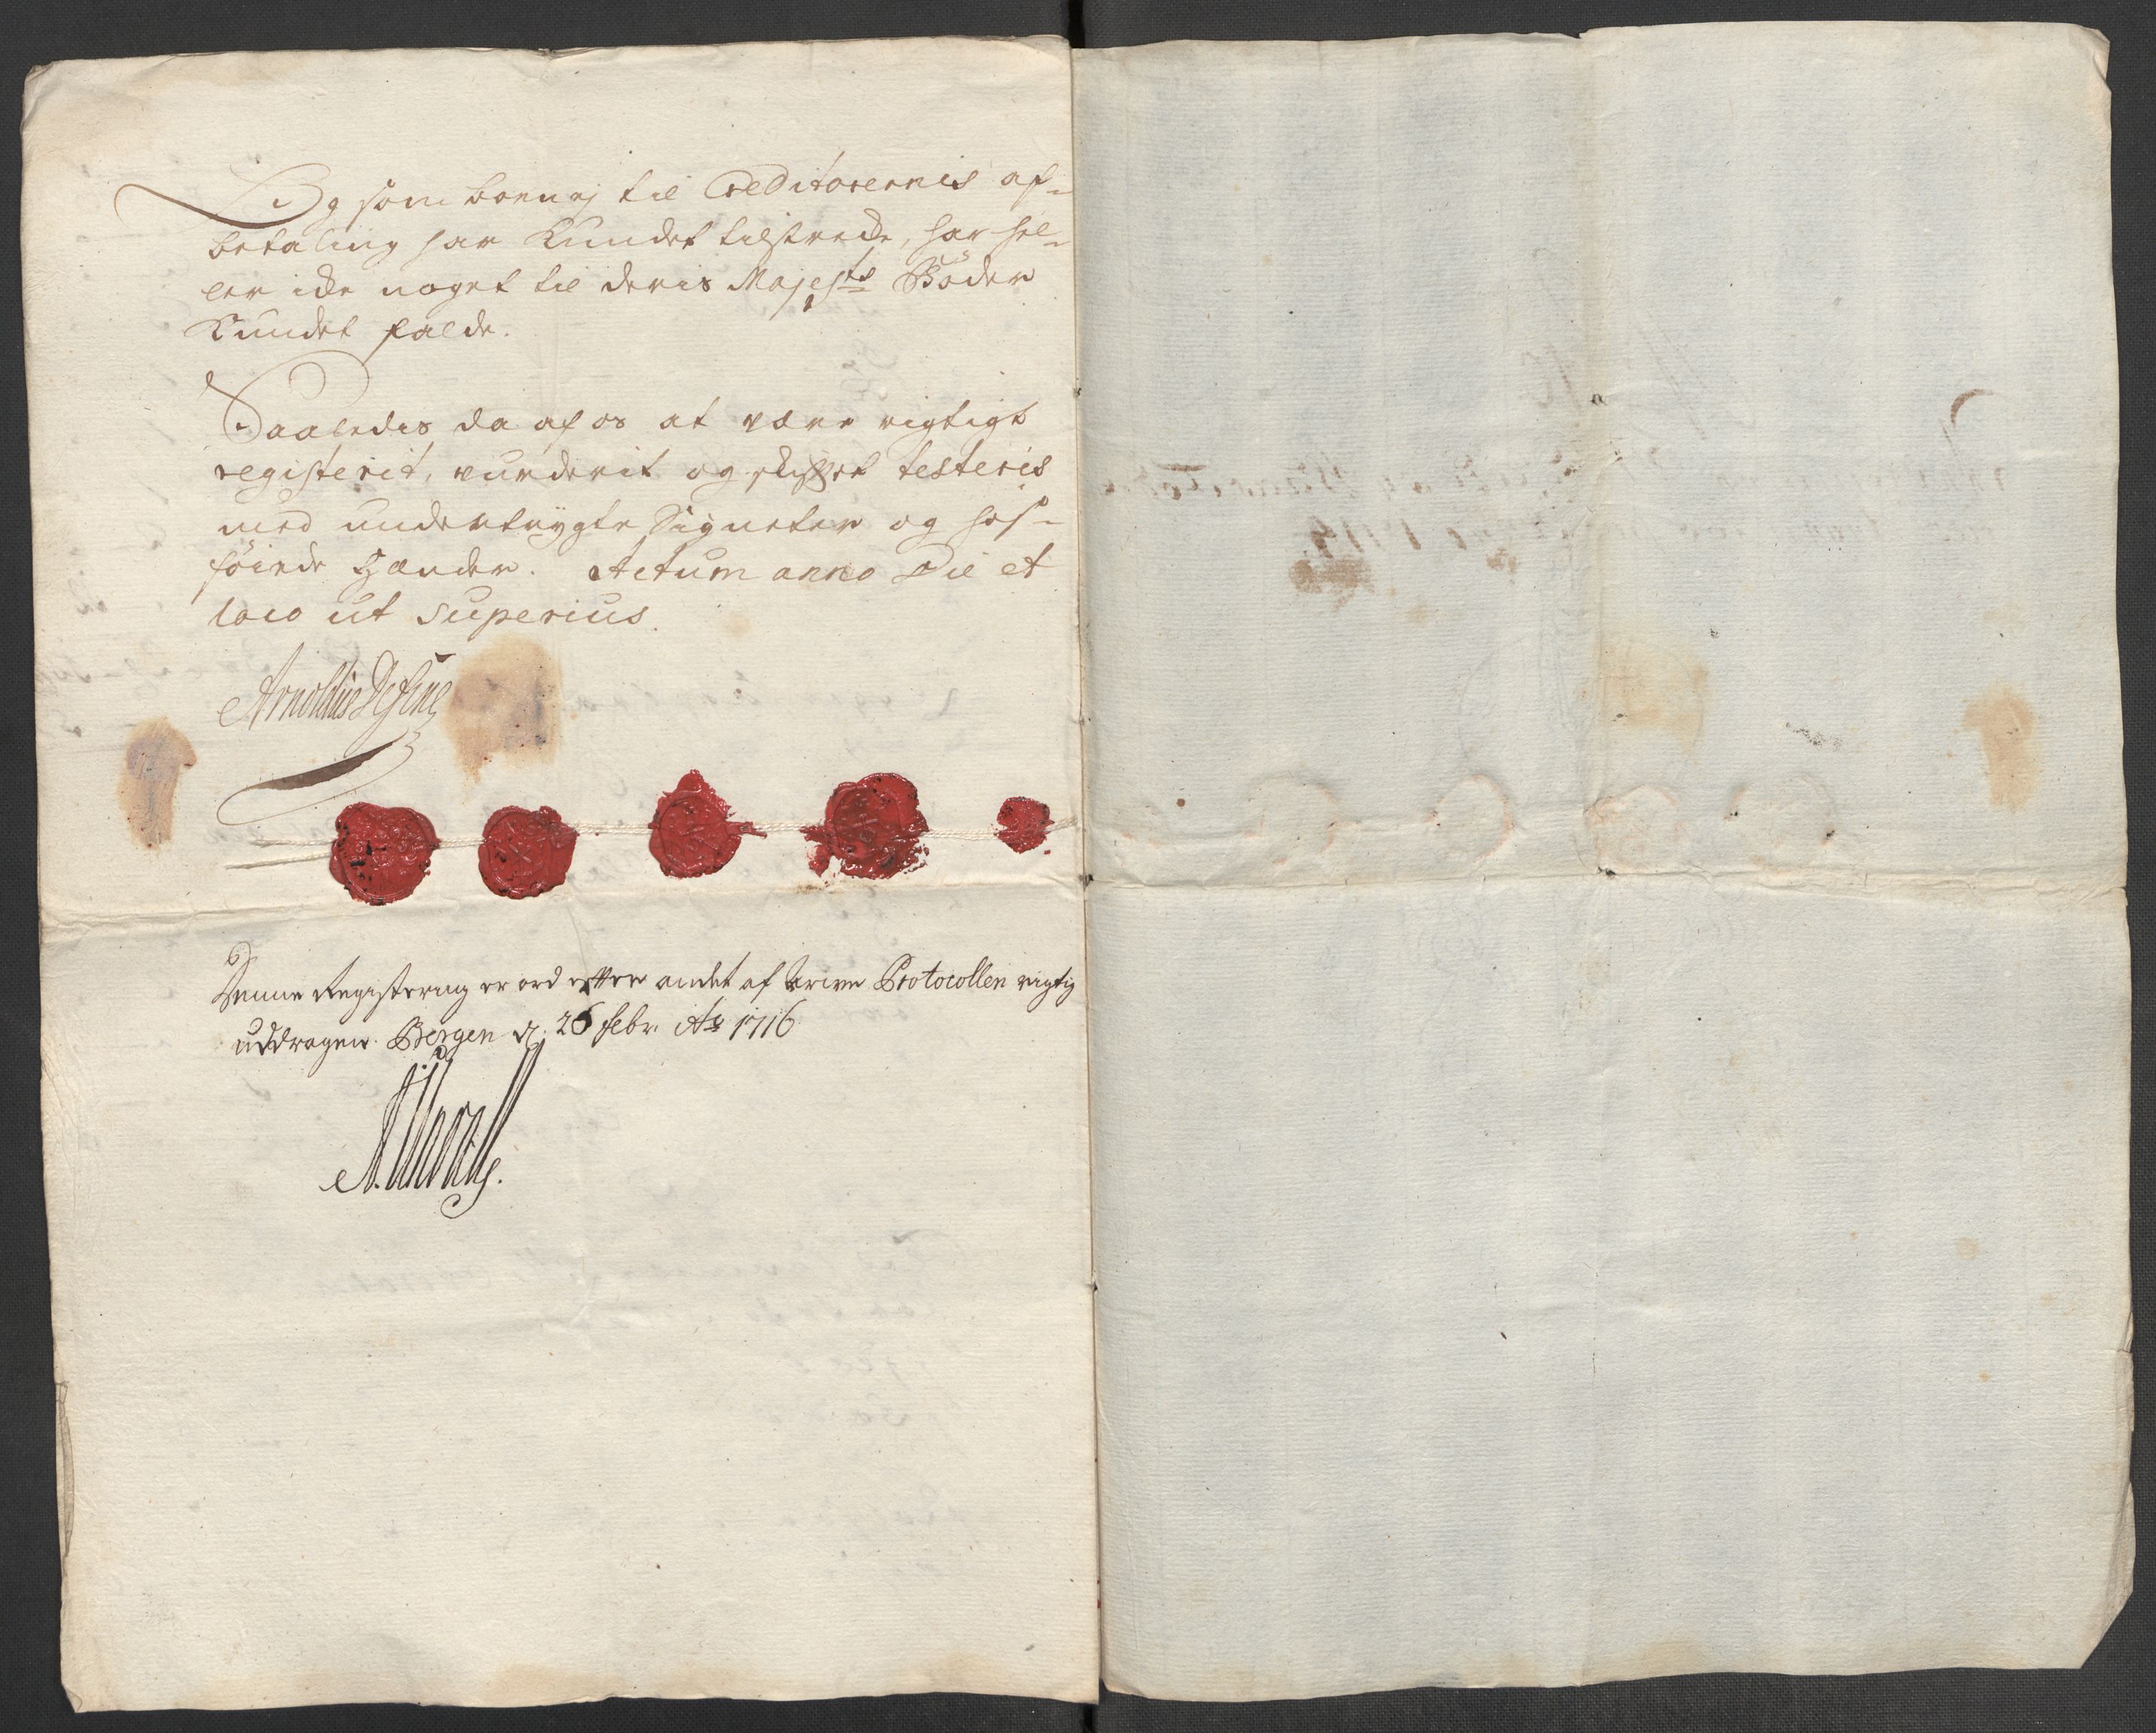 Og som boen ej til Creditorernis af=
betaling har Kundet tilstrecke, har hel=
ler icke noget til deris Majests Bøder
Kundet falde.
Saaledes da af os at være rigtigt
registerit, vurderit og skiftet testeris
med undertrygte Signeter og hos=
føiede Hænder. Actum anno Die et
loco ut superius.
Arnoldus DeFine
Denne Registering er ord efter andet af brevne Protocollen rigtig
uddragen. Bergen d. 26 febr. Ao 1716